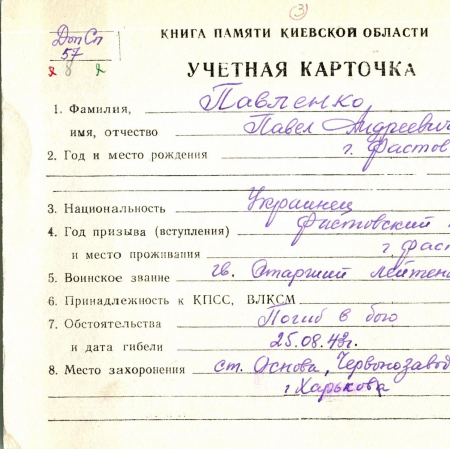 3
Доп Сп
57
2 8 2
КНИГА ПАМЯТИ КИЕВСКОЙ ОБЛАСТИ
УЧЕТНАЯ КАРТОЧКА
1. Фамилия, Павленко,
имя, отчество Павел Андреевич
2. Год и место рождения г. Фастов
3. Национальность Украинец
4. Год призыва (вступления) Фастовский
и место проживания г. Фас
5. Воинское звание гв. Старший лейтен
6. Принадлежность к КПСС, ВЛКСМ
7. Обстоятельства Погиб в бою
и дата гибели 25.08.43г.
8. Место захоронения ст. Основа, Червонозавод
г. Харькова